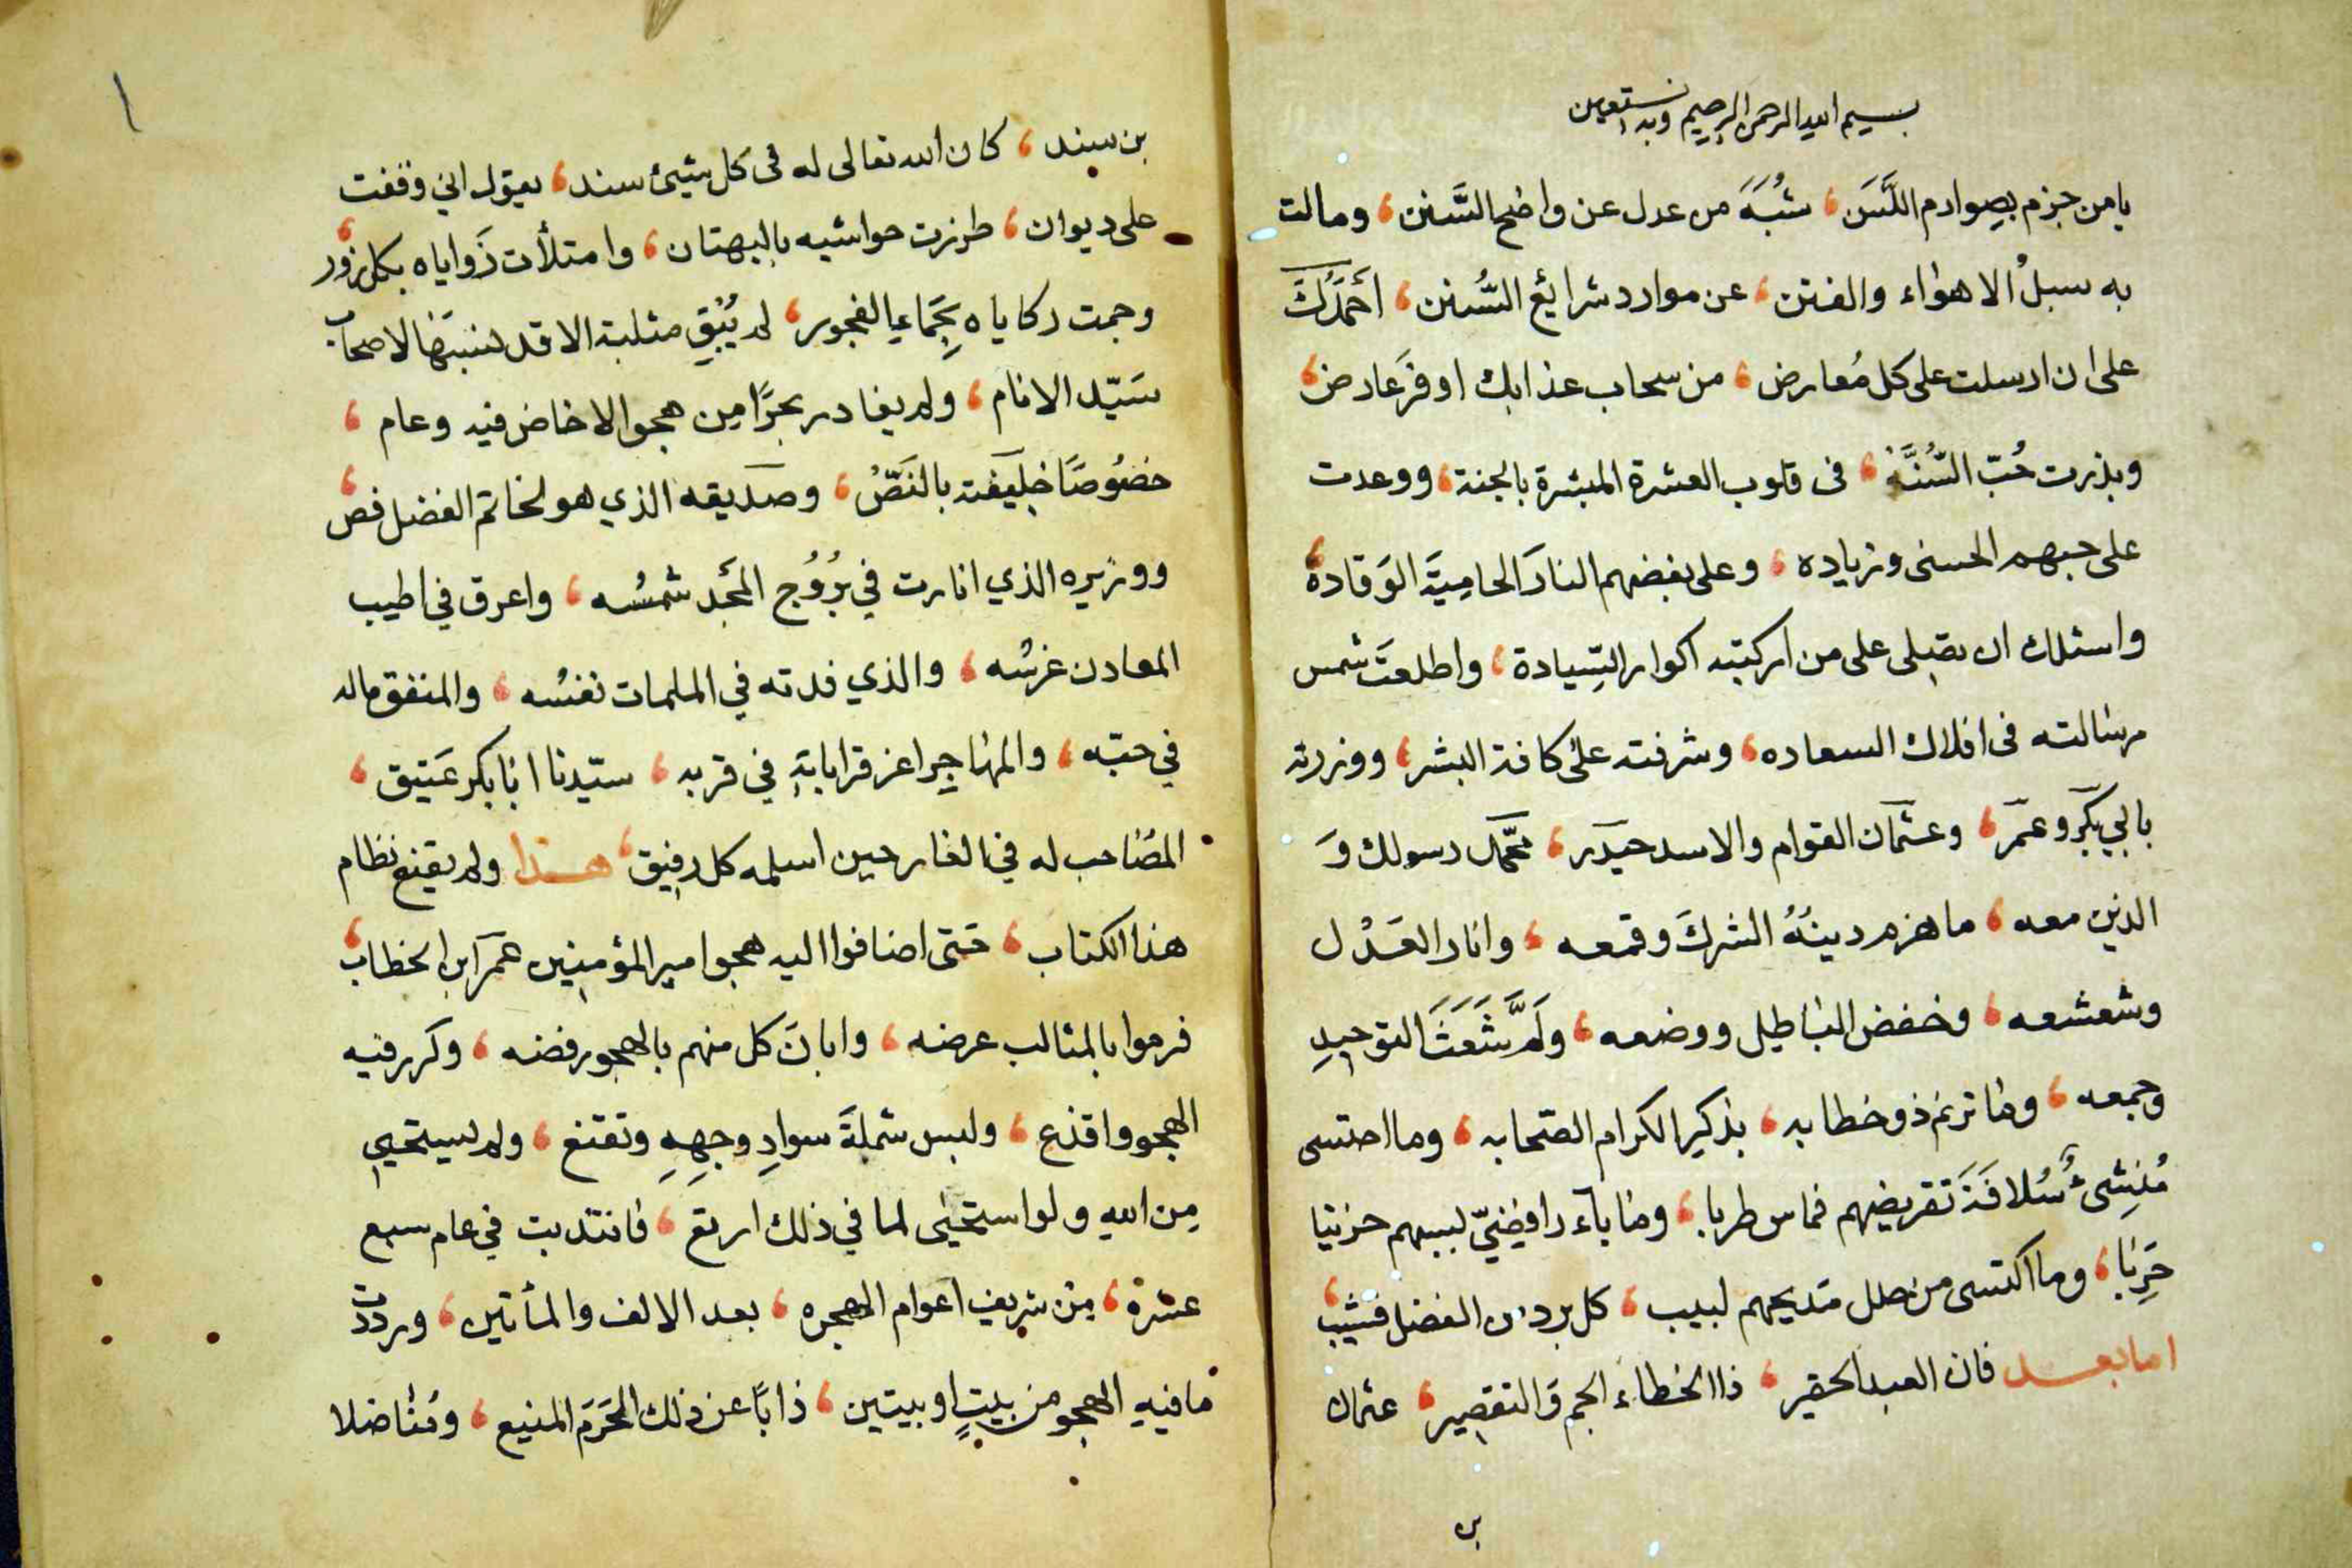 بسم الله الرحمن الرحيم وبه نستعين
يا من جزم بصوارم اللَّسَن، شُبَهَ من عدل عن واضح السَّنن، ومالت
به سبلُ الاهواء والفتن، عن موارد شرايع السُّنن، أحْمَدُكَ
على ان ارسلت على كل مُعارض، من سحاب عذابك اوفرَ عارض،
وبذرت حُبّ السُّنَّة، فى قلوب العشرة المبشرة بالجنة، ووعدت
على حبهم الحسنى وزياده، وعلى بغضهم النارَ الحامِيَةَ الوَقادهْ،
واسئلك ان تصلى على من اركبته اكوار السِّيادة، واطلعتَ شمس
رسالته فى افلاك السعاده، وشرفته على كافة البشر، ووزرته
بابي بكَر وعمَر، وعثمان القوام والاسد حيدَر، محَّمد رسولك وَ
الذين معه، ما هزم دينُهُ الشركَ وقمعه، وانار العَدْل
وشعشعه، وخفض الباطيل ووضعه، ولَمَّ شَعَثَ التوحيدِ
وجمعه، وما ترنم ذو خطابه، بذكر الكرام الصحابه، وما احتسى
مُنشِئُ سُلافَةَ تقريضهم فماس طربا، وما بآء رافِضيّ بسبهم حزينا
حَرِبًا، وما اكتسى من حلل مَديحهم لبيب، كل برد من الفضل قشيب،
اما بعد فان العبد الحقير، ذا الخطاء الجم وَالتقصير، عثمان
بن
بن سند، كان الله تعالى له فى كل شيئ سند، يقول اني وقفت
على ديوان، طرزت حواشيه بالبهتان، وامتلأت زَواياه بكل زور،
وجمت ركاياه بِجَماعِ الفجور، لم يُبْقِ مثلبة الا قد نسبَها لاصحاب
سَيّد الانام، ولم يغادر بحرًا مِن هجو الا خاض فيه وعام،
خصُوصًا خليفته بالنَصّ، وصديقه الذي هو لخاتم الفضل فص،
ووزيره الذي انارت في بُرُوُج المجَد شمسُه، واعرق في اطيب
المعادن غرسُه، والذي فدته في الملمات نفسُه، والمنفق ماله
في حبّه، والمهاجِر اعز قرابابَةٍ في قربه، سيّدنا ابا بكر عَتيق،
المصَاحب له في الغار حين اسلمه كل رفيق، هذا ولم يقنع نظام
هذا الكتاب، حَتى اضافوا اليه هجو امير المؤمنِين عمَر ابن الخطاب،
فرموا بالمثالب عرضه، وابانَ كل منهم بالهجو رفضه، وكرر فيه
الهجو واقذع، ولبس شملةَ سوادِ وجهِهِ وتقنع، ولم يستحيي
مِن اللهِ ولو استحيى لما في ذلك ارتع، فانتدبت في عام سبع
عشرة، مِن شريف اعوام الهجره، بعد الالف والمأتين، ورددت
ما فيهِ الهجو من بيتٍ او بيتين، ذابًا عن ذلك الحَرَمِ المنيع، ومُناضلا